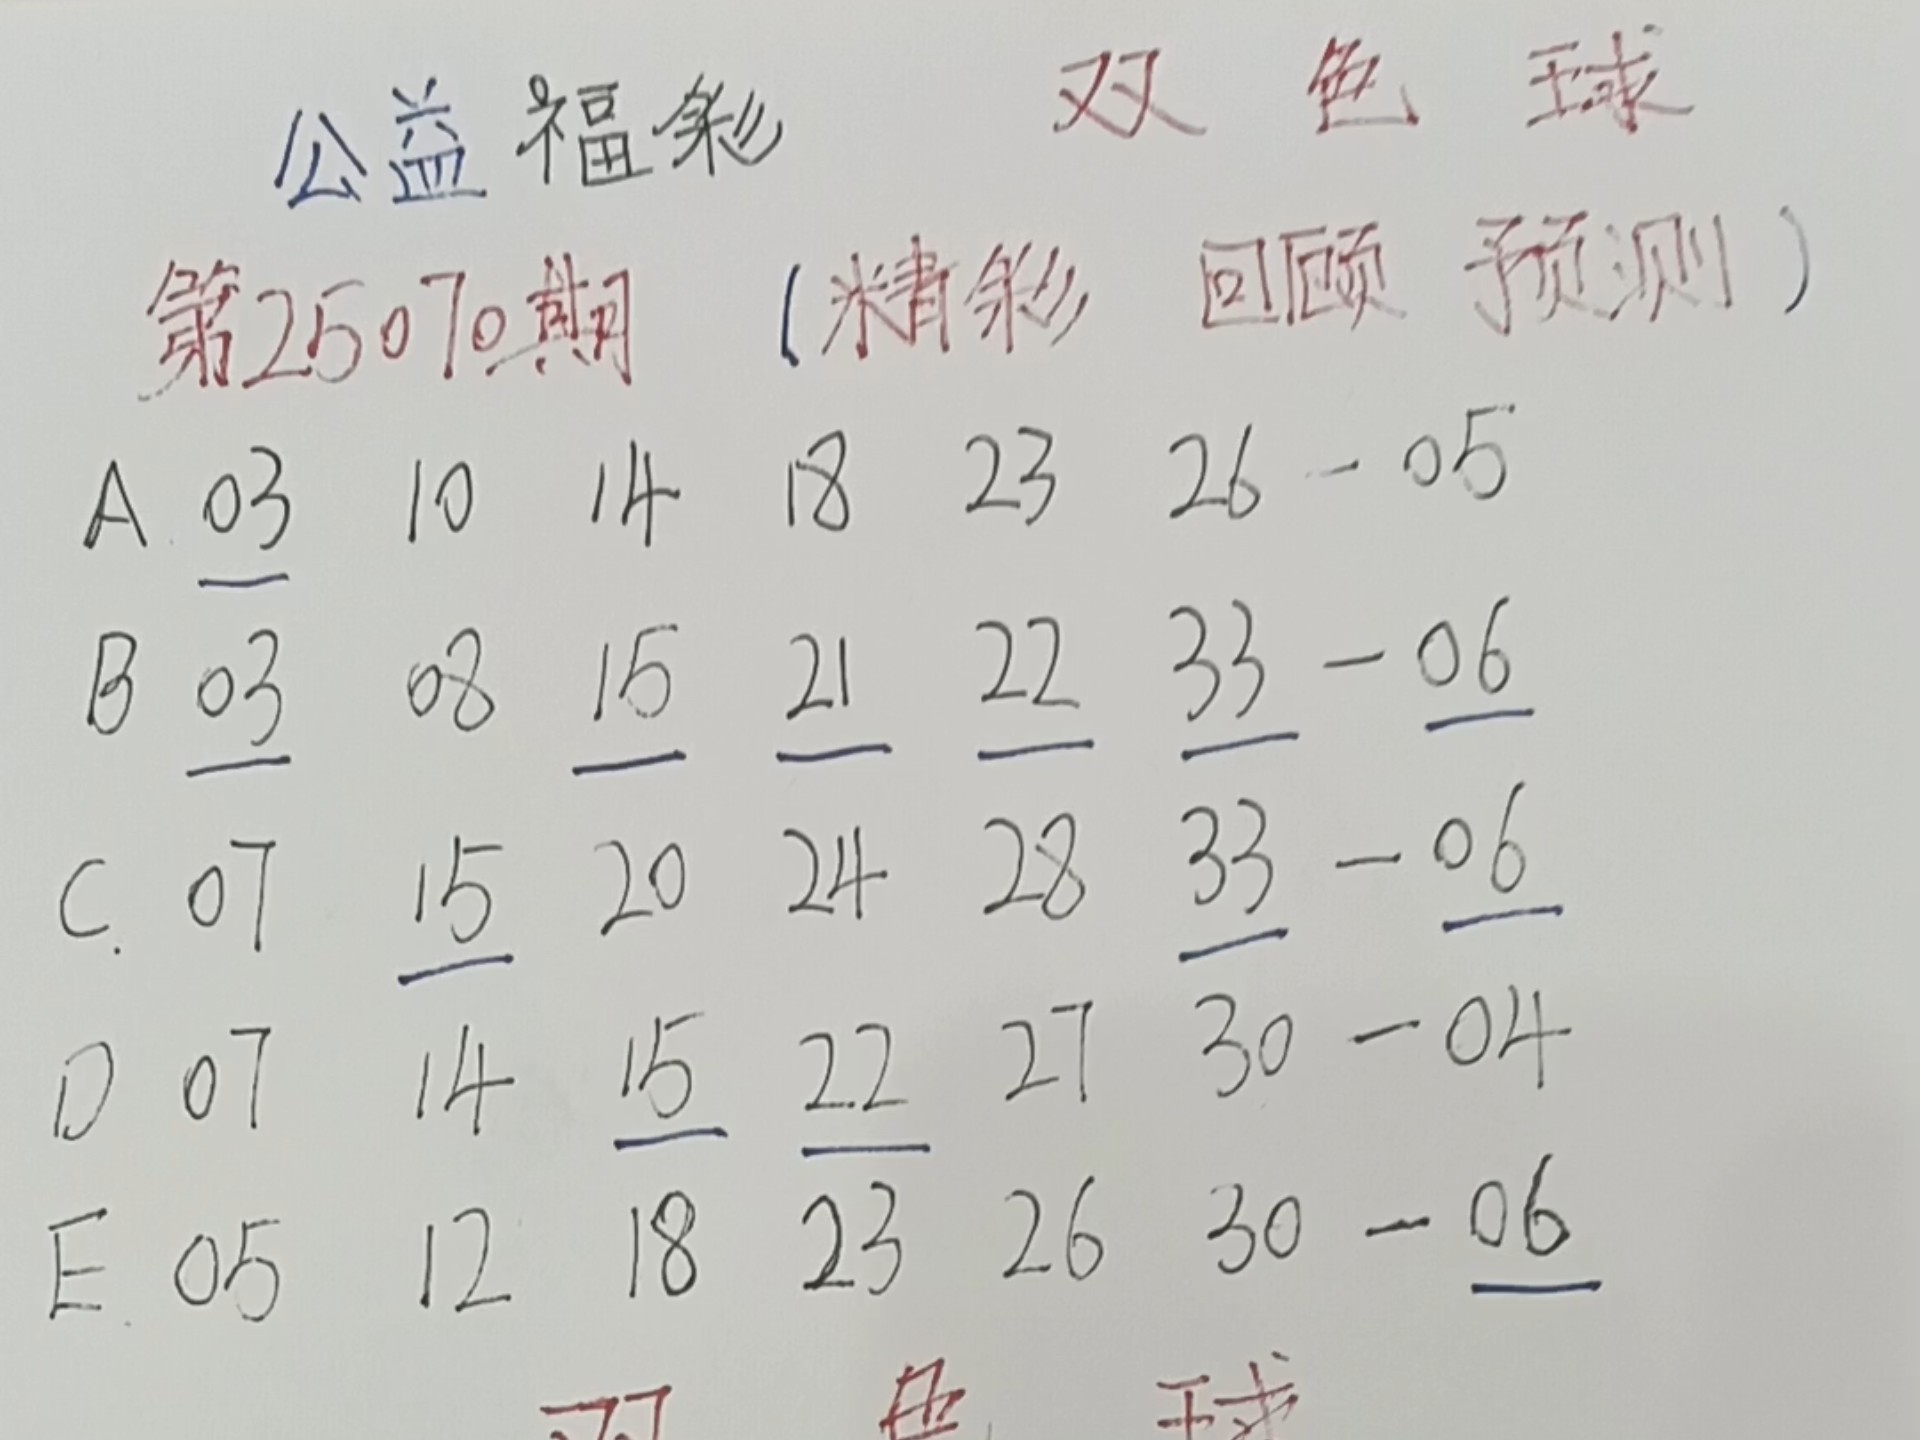 公益福彩 双色球
第25070期 (精彩 回顾 预测)
A 03 10 14 18 23 26 - 05
B 03 08 15 21 22 33 - 06
C. 07 15 20 24 28 33 - 06
D 07 14 15 22 27 30 - 04
E. 05 12 18 23 26 30 - 06
双色球